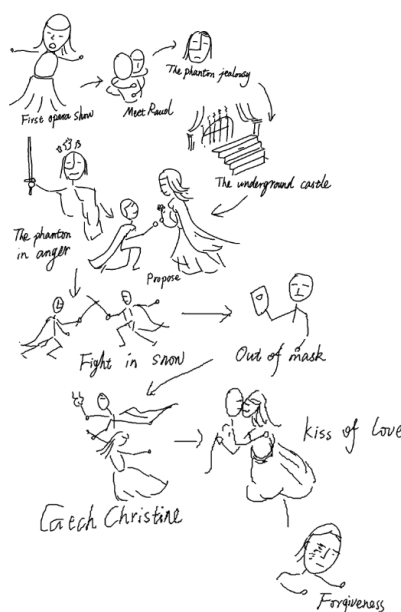 First opera show
Meet Raul
The phantom jealousy
The underground castle
Propose
The phanton
in anger
Fight in snow
Out of mask
Caech Christine
kiss of love
Forgiveness